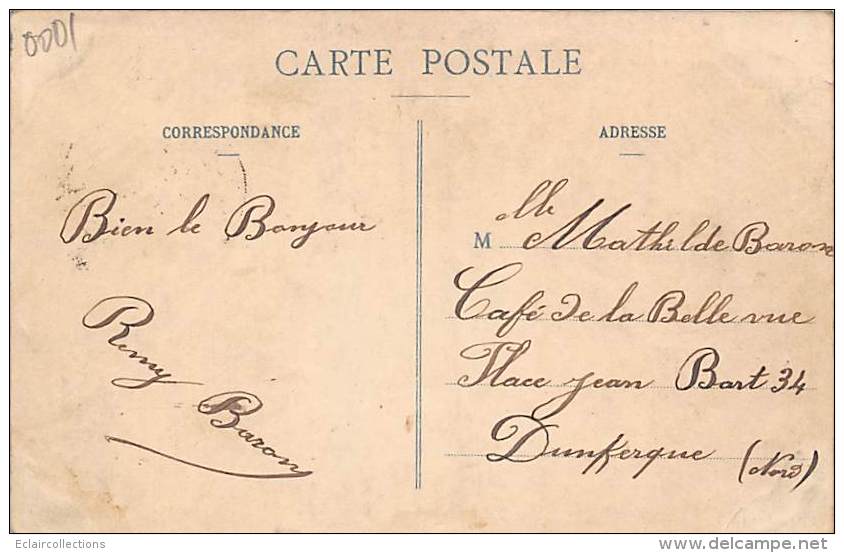 0001
CARTE POSTALE
CORRESPONDANCE
Bien le Bonjour
Remy
Baron
ADRESSE
M lle Mathilde Baron
Café de la Belle vue
Place Jean Bart 34
Dunkerque (Nord)
Eclaircollections
www.delcampe.net